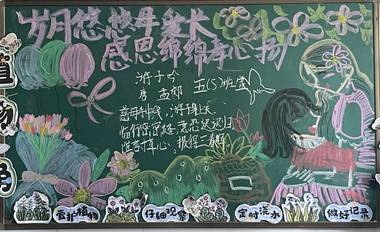 岁月悠悠母爱长
感恩绵绵孝心扬
游子吟
唐 孟郊
五(5)班宣
慈母手中线，游子身上衣
临行密密缝，意恐迟迟归
谁言寸草心，报得三春晖
爱护植物
仔细观察
定时浇水
做好记录